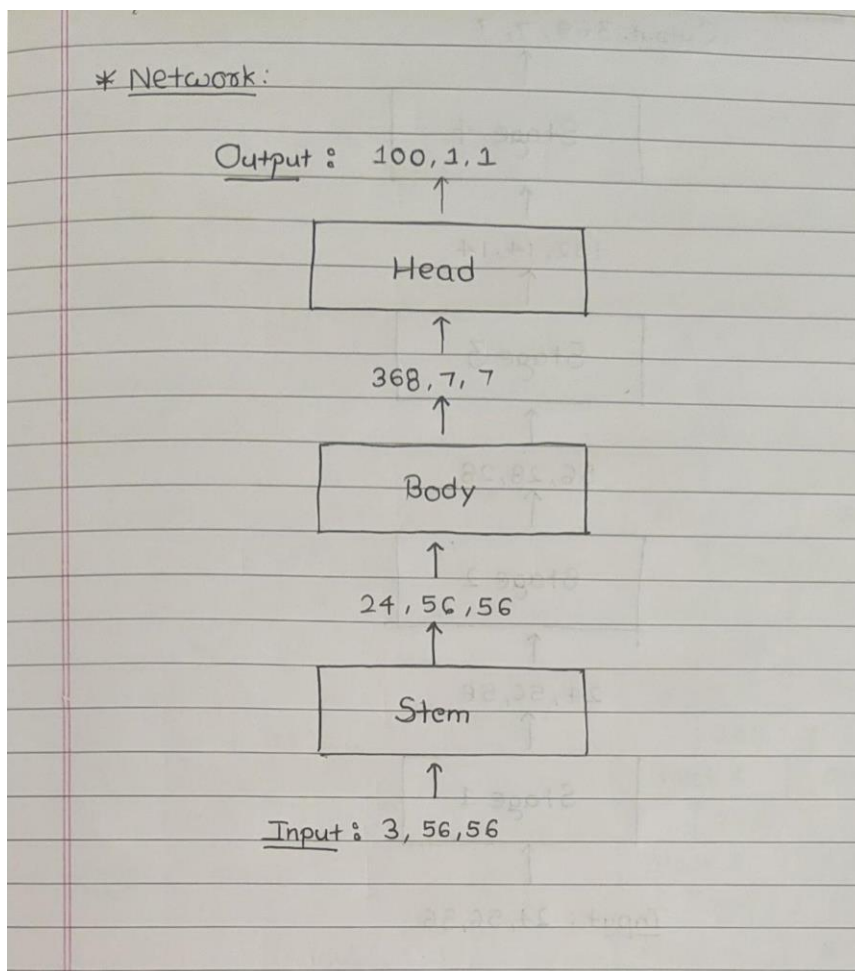 * Network:
Output: 100, 1, 1
Head
368, 7, 7
Body
24, 56, 56
Stem
Input: 3, 56, 56